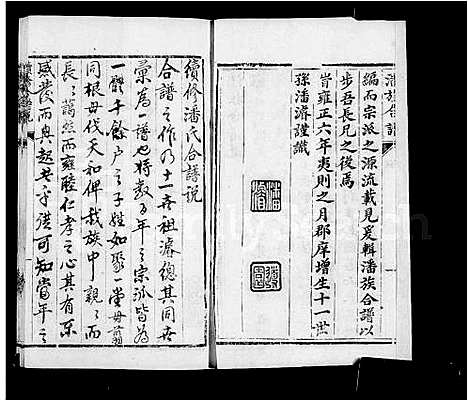 潘族合譜
編而宗派之源流載見爰輯潘族合譜以
步吾長兄之後焉
旹雍正六年夷則之月郡庠增生十一世
孫潘濬謹識
續修潘氏合譜說
合譜之作乃十一世祖濬總其同世
彙為一譜也將數百年之宗派皆為
一觀千餘户之子姓如聚一堂毋翦
同根毋伐天和俾我族中親之而
長之藹然而雍睦仁孝之心其有不
感發而興起者乎洪可知當年之